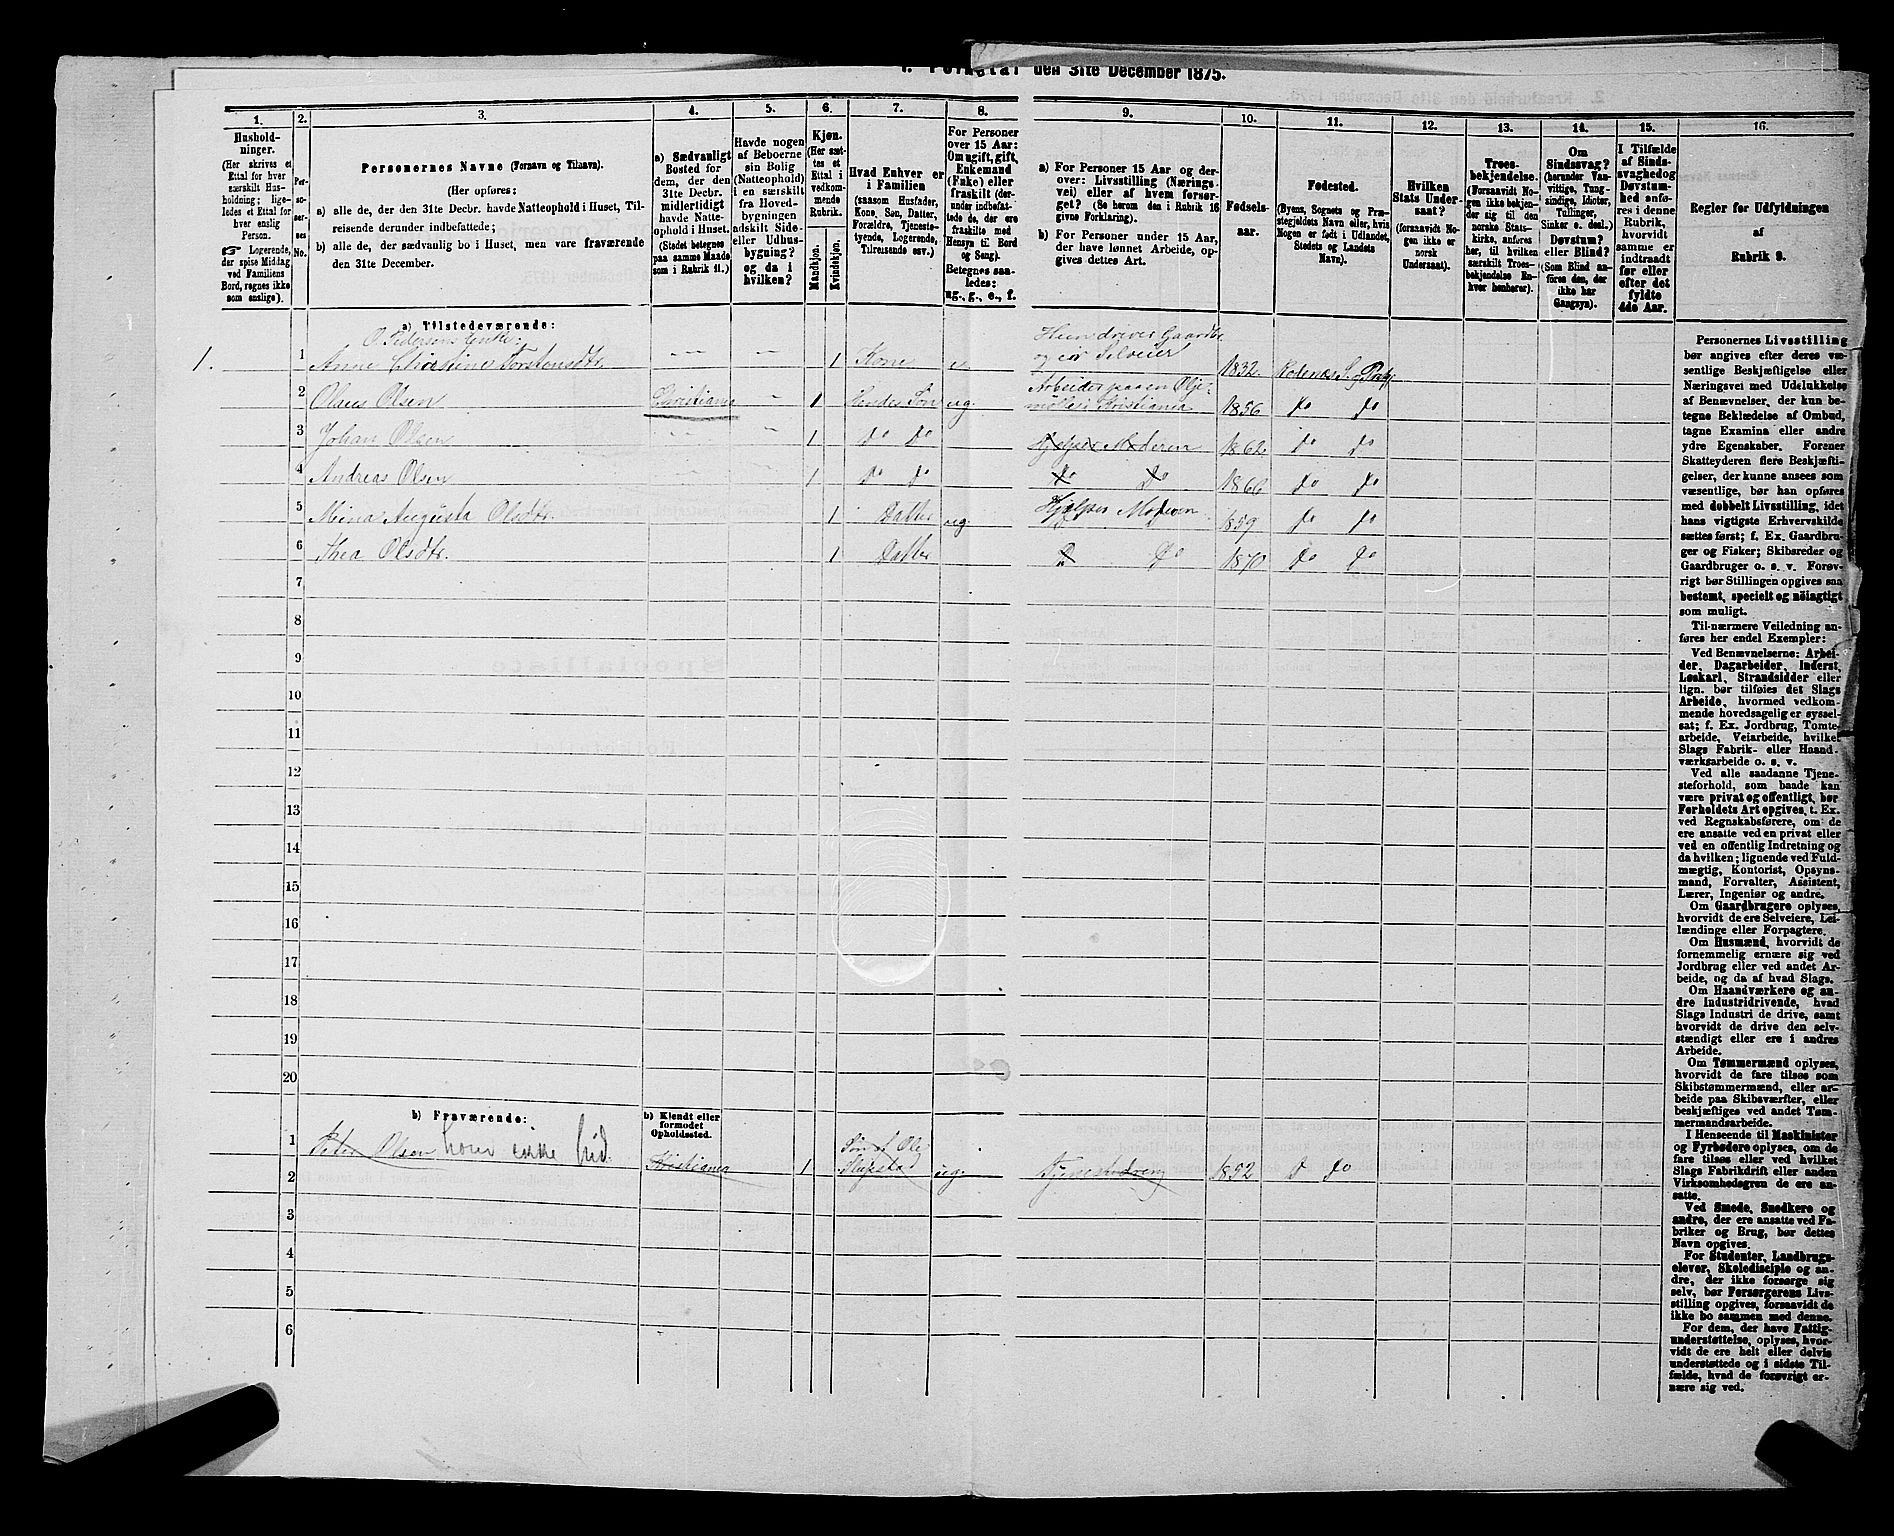 den 31te December 1875.
1.
2.
3.
4.
5.
6.
7.
8.
9.
10.
11.
12.
13.
14.
15.
16.
Hushold-
ninger.
(Her skrives et
Ettal for hver
særskilt Hus-
holdning; lige-
ledes et Ettal for
hver enslig
Person.
☞ Logerende,
der spise Middag
ved Familiens
Bord, regnes ikke
som enslige).
Per-
so-
ner-
nes
No.
Personernes Navne (Fornavn og Tilnavn).
(Her opføres:
a) alle de, der den 31te Decbr. havde Natteophold i Huset, Til-
reisende derunder indbefattede;
b) alle de, der sædvanlig bo i Huset, men vare fraværende
den 31te December.
a) Sædvanligt
Bosted for
dem, der den
31te Decbr.
midlertidigt
havde Natte-
ophold i Huset.
(Stedet betegnes
paa samme Maade
som i Rubrik 11.)
Havde nogen
af Beboerne
sin Bolig
(Natteophold)
i en særskilt
fra Hoved-
bygningen
adskilt Side-
eller Udhus-
bygning?
og da i
hvilken?
Kjøn.
(Her sæt-
tes et
Ettal i
vedkom-
mende
Rubrik.
Mandkjøn.
Kvindekjøn.
Hvad Enhver er
i Familien
(saasom Husfader,
Kone, Søn, Datter,
Forældre, Tjeneste-
tyende, Logerende,
Tilreisende osv.)
For Personer
over 15 Aar:
Om ugift, gift,
Enkemand
(Enke) eller
fraskilt (der-
under indbefat-
tede de, der ere
fraskilte med
Hensyn til Bord
og Seng).
Betegnes saa-
ledes:
ug., g., e., f.
a) For Personer 15 Aar og der-
over: Livsstilling (Nærings-
vei) eller af hvem forsør-
get? (Se herom den i Rubrik 16
givne Forklaring).
b) For Personer under 15 Aar,
der have lønnet Arbeide, op-
gives dettes Art.
Fødsels-
aar.
Fødested.
(Byens, Sognets og Præ-
stegjeldets Navn eller, hvis
Nogen er født i Udlandet,
Stedets og Landets
Navn).
Hvilken
Stats Under-
saat?
(forsaavidt No-
gen ikke er
norsk
Undersaat).
Troes-
bekjendelse.
(Forsaavidt No-
gen ikke bekjen-
der sig til den
norske Stats-
kirke, anføres
her, til hvilken
særskilt Troes-
bekjendelse En-
hver henhører).
Om
Sindssvag?
(herunder Van-
vittige, Tung-
sindige, Idioter,
Tullinger,
Sinker o. desl.)
Døvstum?
eller Blind?
(Som Blind an-
føres den, der
ikke har
Gangsyn).
I Tilfælde
af Sinds-
svaghed og
Døvstum-
hed anfø-
res i denne
Rubrik,
hvorvidt
samme er
indtraadt
før eller
efter det
fyldte
4de Aar.
Regler for Udfyldningen
af
Rubrik 9.
a) Tilstedeværende:
O. Pedersens Enke:
1. 1 Anne Christine Torstensdtr. 1 Kone e. Hun driver Gaardbr.
og er Selveier 1832.
2 Olaus Olsen Christiania 1 Hendes Søn ug Arbeider paa en Olje-
mølle i Kristiania 1856 do do
3 Johan Olsen 1 do do Hjelper Moderen 1862 do do
4 Andreas Olsen 1 do do do do 1866 do do
5 Mina Augusta Olsdtr. 1 Datter ug Hjelper Moderen 1859 do do
6 Thea Olsdtr. 1 Datter Do Do 1870 do do
7
8
9
10
11
12
13
14
15
16
17
18
19
20
b) Fraværende:
b) Kjendt eller
formodet
Opholdssted.
1 Peter Olsen hører ikke hid. Kristiania 1 Søn af Ole ug. 1852 do do
2
3
4
5
6
Personernes Livsstilling
bør angives efter deres væ-
sentlige Beskjæftigelse eller
Næringsvei med Udelukkelse
af Benævnelser, der kun be-
tegne Beklædelse af Ombud,
tagne Examina eller andre
ydre Egenskaber. Forener
Skatteyderen flere Beskjæfti-
gelser, der kunne ansees som
væsentlige, bør han opføres
med dobbelt Livsstilling, idet
hans vigtigste Erhvervskilde
sættes først; f. Ex. Gaardbru-
ger og Fisker; Skibsreder og
Gaardbruger o. s. v. Forøv-
rigt bør Stillingen opgives saa
bestemt, specielt og nöiagtigt
som muligt.
Til nærmere Veiledning an-
føres her endel Exempler:
Ved Benævnelserne: Arbei-
der, Dagarbeider, Inderst,
Løskarl, Strandsidder eller
lign. bør tilføies det Slags
Arbeide, hvormed vedkom-
mende hovedsagelig er syssel-
sat; f. Ex. Jordbrug, Tomte-
arbeide, Veiarbeide, hvilket
Slags Fabrik- eller Haand-
værksarbeide o. s. v.
Ved alle saadanne Tjene-
steforhold, som baade kan
være privat og offentligt, bør
Forholdets Art opgives, t. Ex.
ved Regnskabsførere, om de
ere ansatte ved en privat eller
ved en offentlig Indretning og
da hvilken; lignende ved Fuld-
mægtig, Kontorist, Opsyns-
mand, Forvalter, Assistent,
Lærer, Ingeniør og andre.
Om Gaardbrugere oplyses,
hvorvidt de ere Selveiere, Lei-
lændinge eller Forpagtere.
Om Husmænd, hvorvidt de
fornemmelig ernære sig ved
Jordbrug eller ved andet Ar-
beide, og da af hvad Slags.
Om Haandværkere og an-
dre Industridrivende, hvad
Slags Industri de drive, samt
hvorvidt de drive den selv-
stændigt eller ere i andres
Arbeide.
Om Tømmermænd oplyses,
hvorvidt de fare tilsøs som
Skibstømmermænd, eller ar-
beide paa Skibsværfter, eller
beskjæftiges ved andet Tøm-
mermandsarbeide.
I Henseende til Maskinister
og Fyrbødere oplyses, om de
fare tilsøs eller ved hvilket
Slags Fabrikdrift eller anden
Virksomhedsgren de ere an-
satte.
Ved Smede, Snedkere og
andre, der ere ansatte ved Fa-
briker og Brug, bør dettes
Navn opgives.
For Studenter, Landbrugs-
elever, Skoledisciple og an-
dre, der ikke forsørge sig
selv, bør Forsørgerens Livs-
stilling opgives, forsaavidt de
ikke bo sammen med denne.
For dem, der have Fattig-
understøttelse, oplyses, hvor-
vidt de ere helt eller delvis
understøttede og i sidste Til-
fælde, hvad de forøvrigt er-
nære sig ved.